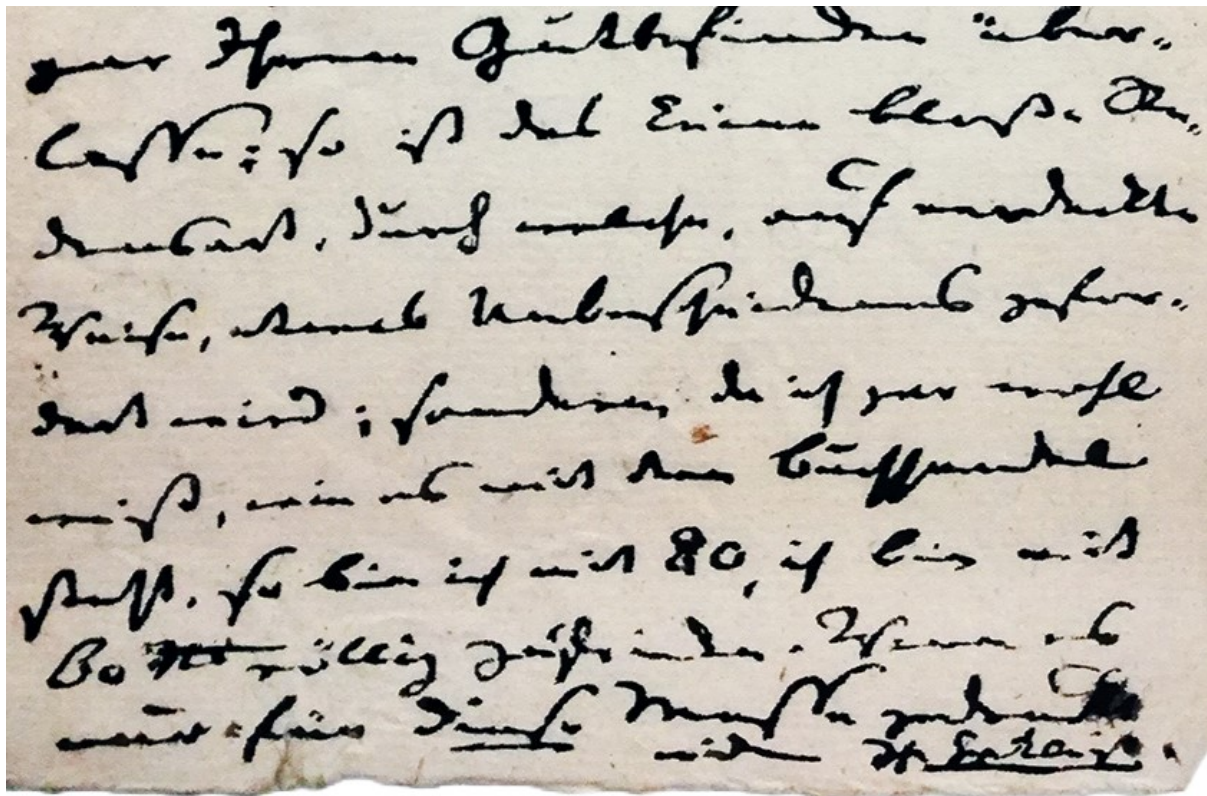 ganz Ihrem Gutbefinden über-
lasse; so ist das keine bloße Re-
densart, durch welche, auf verdeckte
Weise, etwas Unbescheidenes gefor-
dert wird; sondern, da ich gar wohl
weiß, wie es mit dem Buchhandel
steht, so bin ich mit 80, ich bin mit
60 völlig zufrieden. Wenn es
nur für diese Messe gedruckt
wird. H. Kleist.